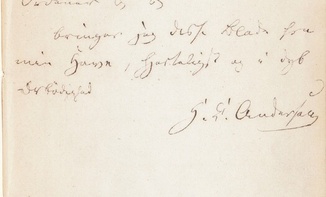 bringer jeg disse Blade fra
min Have, hjerteligst og i dyb
Ærbødighed
H. C. Andersen